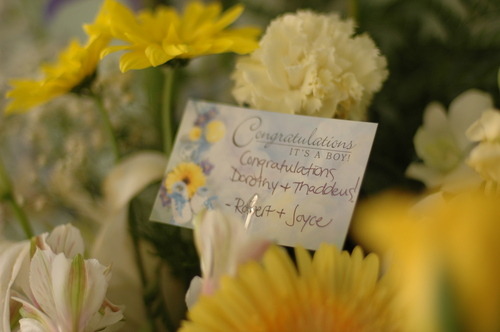 Congratulations
IT'S A BOY!
Congratulations
Dorothy + Thaddeus!
- Robert + Joyce